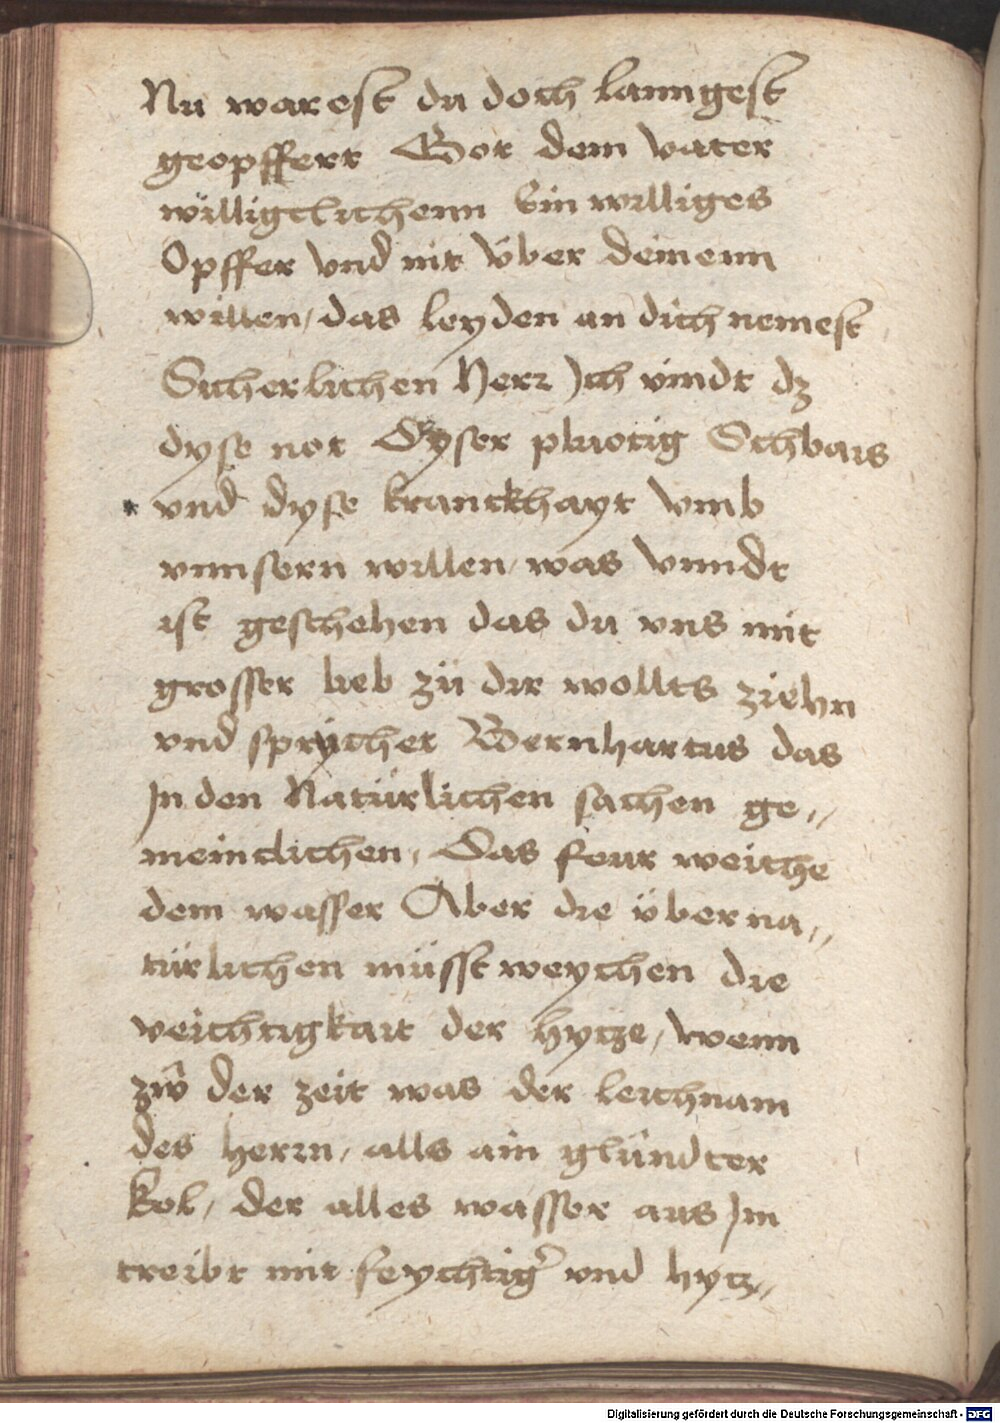 Nu warest du doch lanngest
geopffert Got dem vater
willigclichenn Ein williges
Opffer vnd nit vber deinenn
willen/ das leyden an dich nemest
Sicherlichen Herr Jch vindt dz
dyse not Dyser pluotig Schbais
vnd dyse kranckhayt vmb
vnnsern willen/ was vnndt
ist geschehen das du vns mit
grosser lieb zü dir wollts ziehn
vnd sprücher Bernhartus das
Jn den Natürlichen sachen ge„
meinclichen, Das feur weiche
dem wasser Aber die überna„
türlichen müsst weychen die
veichtigkait der hytze/ wenn
zŵ der zeit was der leichnam
des herrn/ alls ain glündter
kol/ der alles wasser aus Jm
treibt mit feychtig&#x27; vnd hytz„
Digitalisierung gefördert durch die Deutsche Forschungsgemeinschaft - DFG